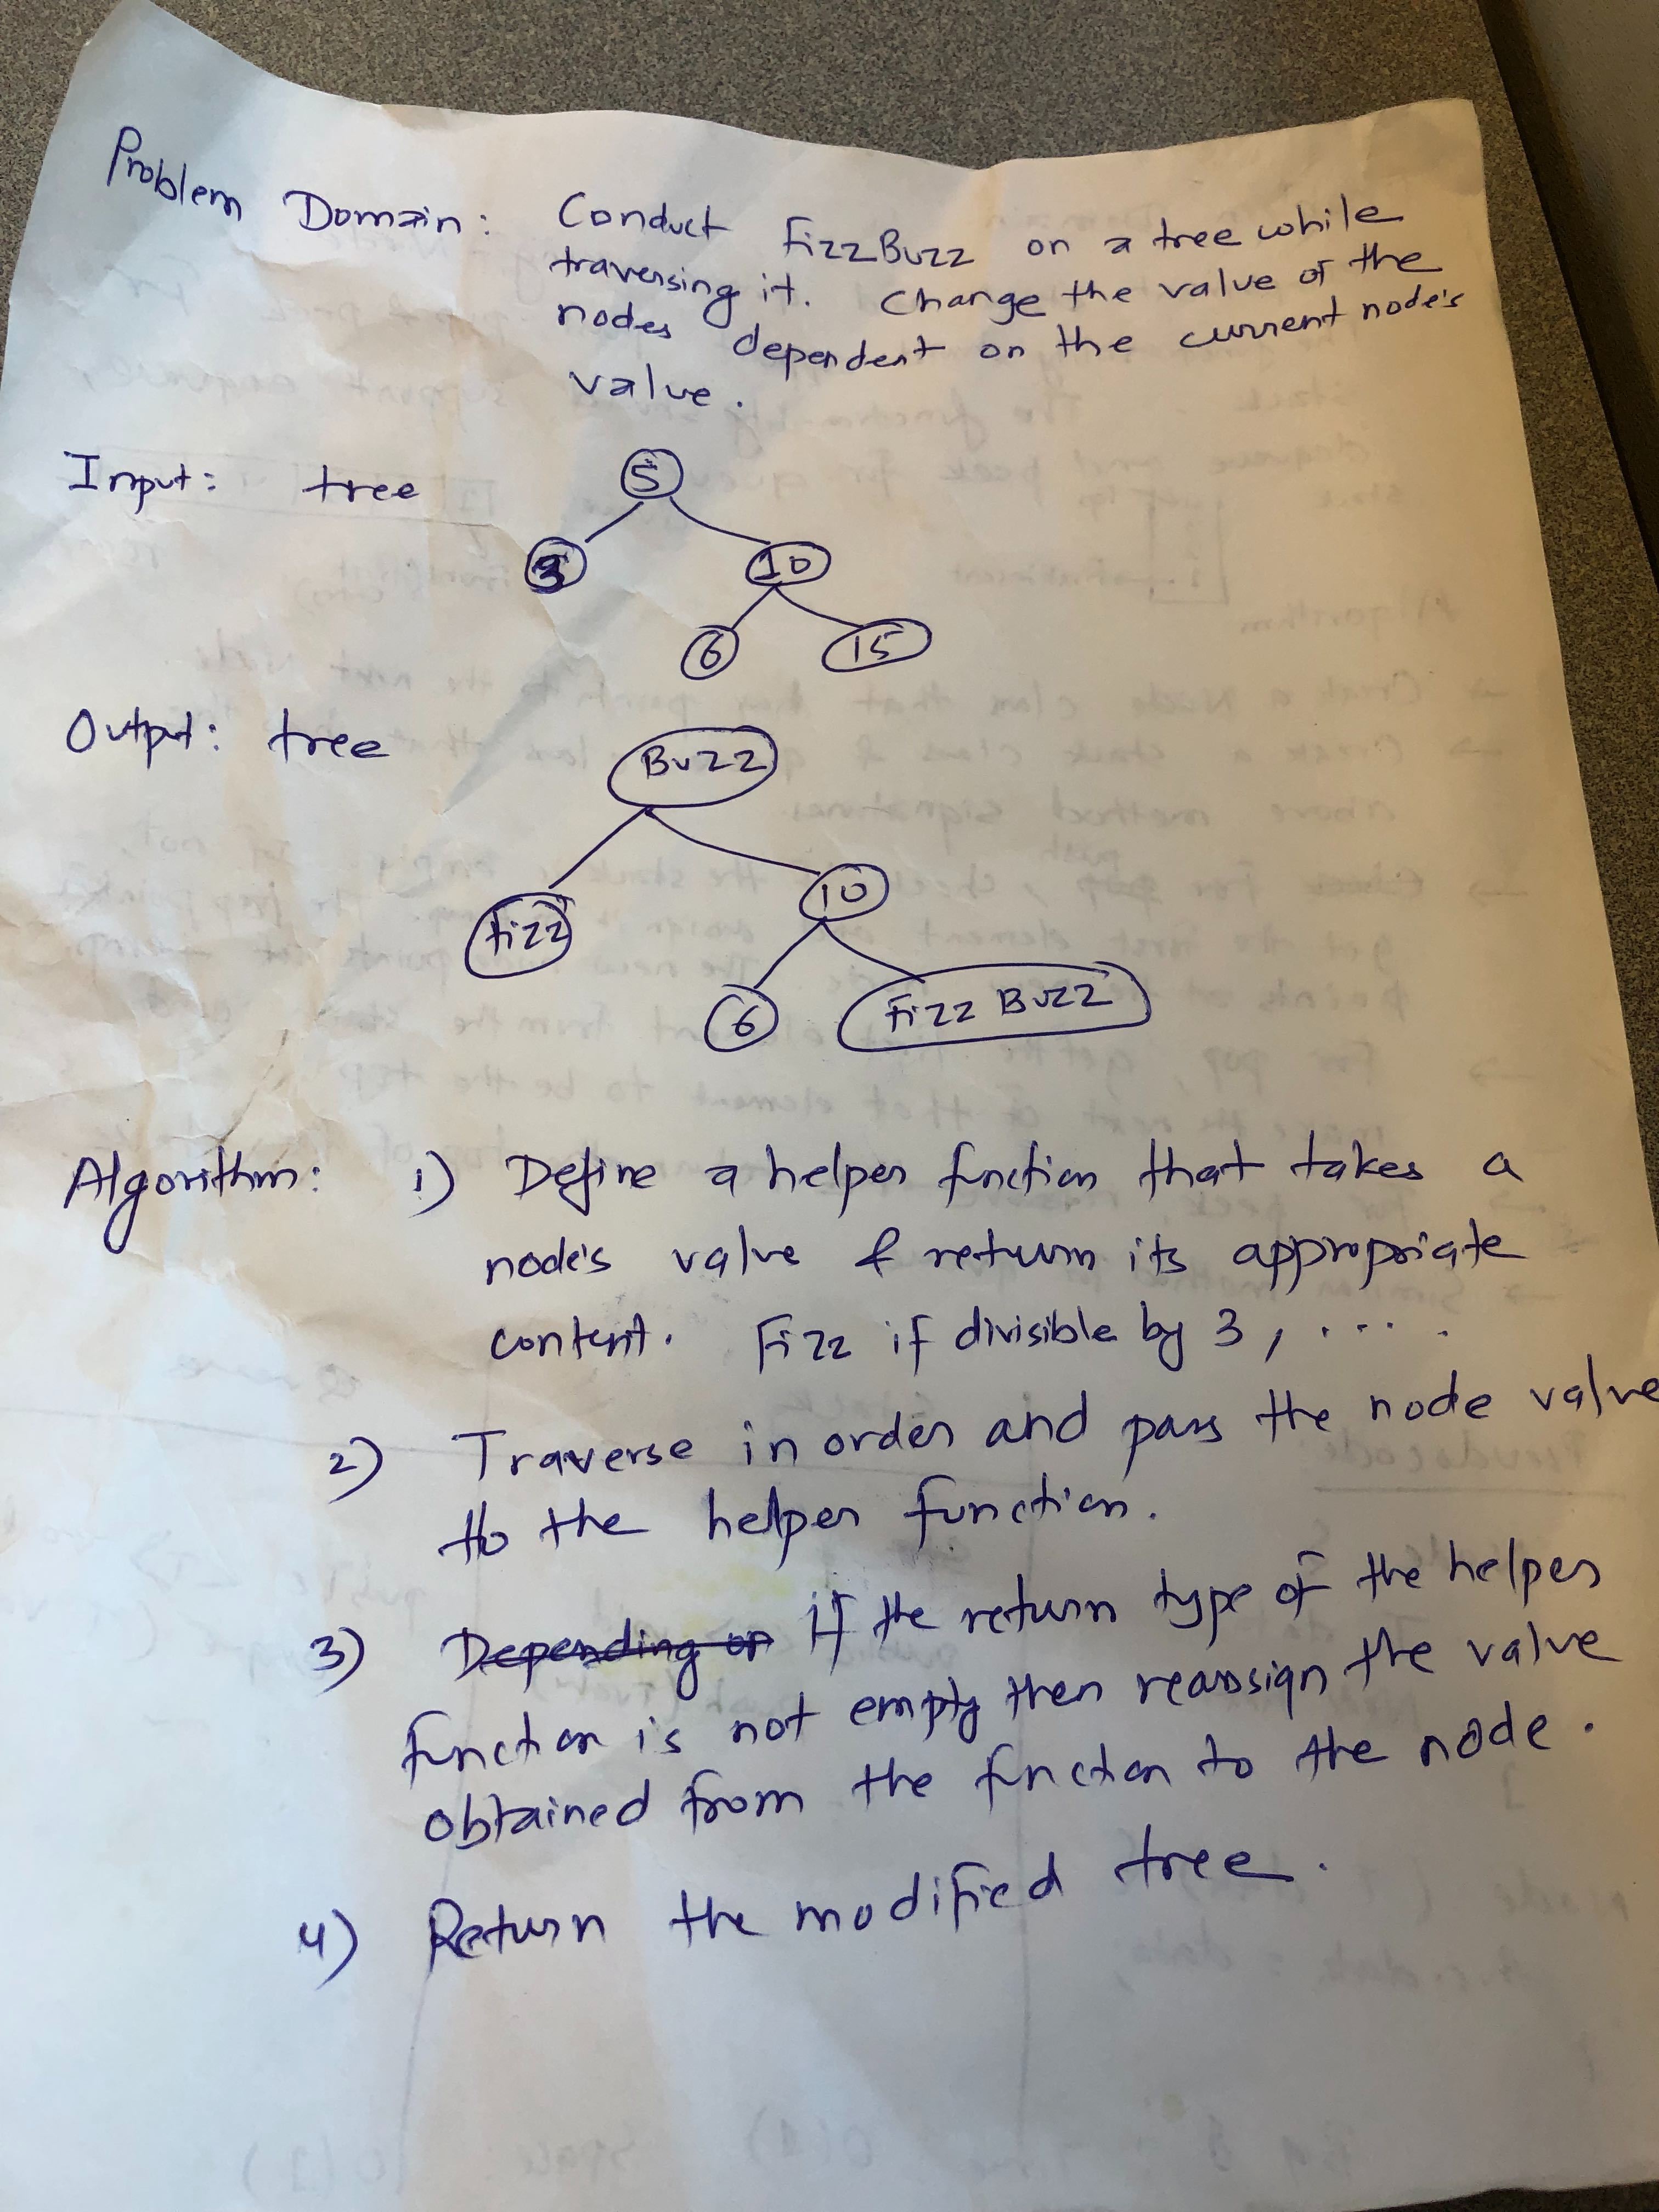 Problem Domain: Conduct FizzBuzz on a tree while
traversing it. Change the value of the
nodes dependent on the current node's
value.
Input: tree
5
3 10
6 15
Output: tree
Buzz
Fizz 10
6 Fizz Buzz
Algorithm: 1) Define a helper function that takes a
node's value & return its appropriate
content. Fizz if divisible by 3, .... .
2) Traverse in order and pass the node value
to the helper function.
3) Depending on If the return type of the helper
function is not empty then reassign the value
obtained from the function to the node.
4) Return the modified tree.